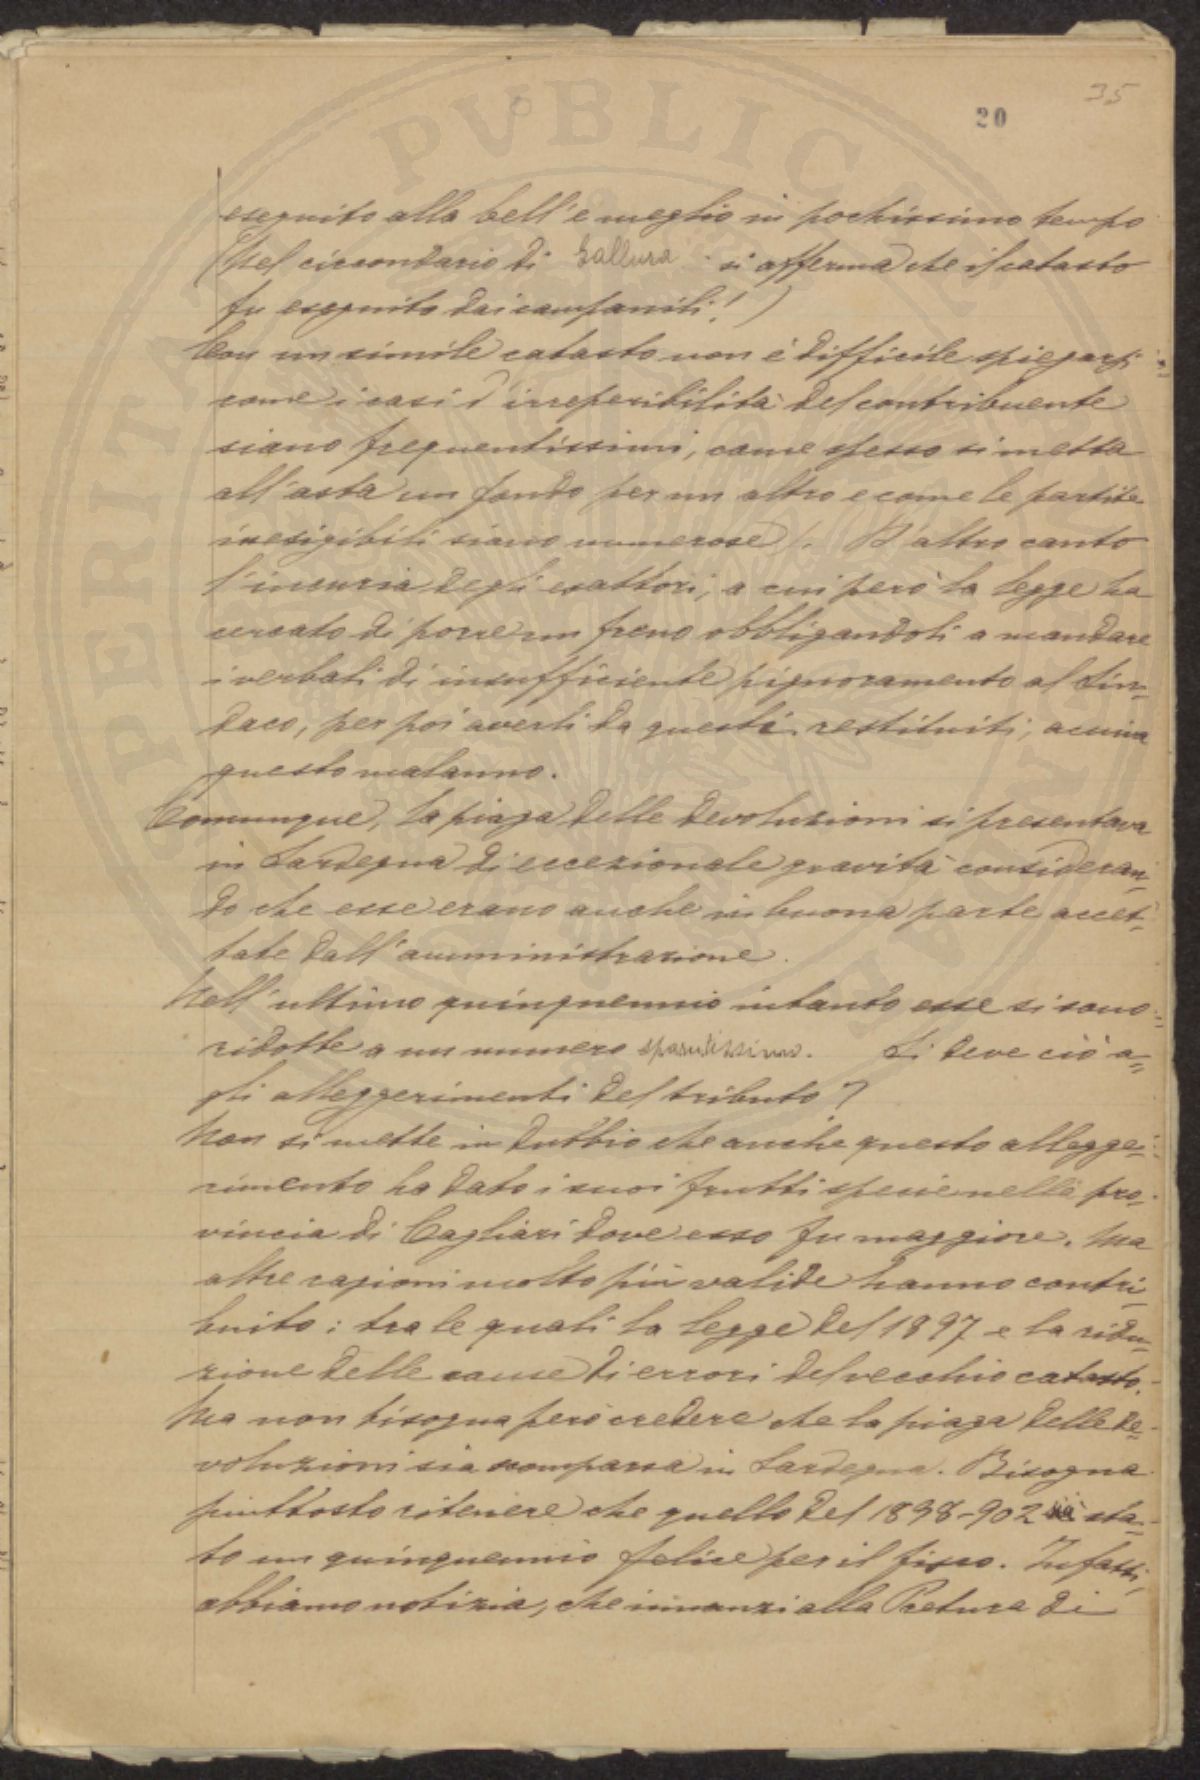 35
20
eseguito alla bell'e meglio in pochissimo tempo
(Nel circondario di Gallura si afferma che il catasto
fu eseguito dai campanili!)
Con un simile catasto non è difficile spiegarsi
come i casi d'irreperibilità del contribuente
siano frequentissimi, come spesso si metta
all'asta un fondo per un altro e come le partite
inesigibili siano numerose. D'altro canto
l'incuria degli esattori, a cui però la legge ha
cercato di porre un freno obbligandoli a mandare
i verbali di insufficiente pignoramento al Sin=
daco, per poi averli da questi restituiti, acuiva
questo malanno.
Comunque, la piaga delle devoluzioni si presentava
in Sardegna di eccezionale gravità consideran=
do che esse erano anche in buona parte accet=
tate dall'amministrazione.
Nell'ultimo quinquennio intanto esse si sono
ridotte a un numero sparutissimo. Si deve ciò a=
gli alleggerimenti del tributo?
Non si mette in dubbio che anche questo allegge=
rimento ha dato i suoi frutti specie nella pro=
vincia di Cagliari dove esso fu maggiore. Ma
altre ragioni molto più valide hanno contri=
buito: tra le quali la legge del 1897 e la ridu=
zione delle cause di errori del vecchio catasto.
Ma non bisogna però credere che la piaga delle de=
voluzioni sia scomparsa in Sardegna. Bisogna
piuttosto ritenere che quello del 1898-902 sia sta=
to un quinquennio felice per il fisco. Infatti,
abbiamo notizia, che innanzi alla Pretura di
PUBLICAE
VERITATI